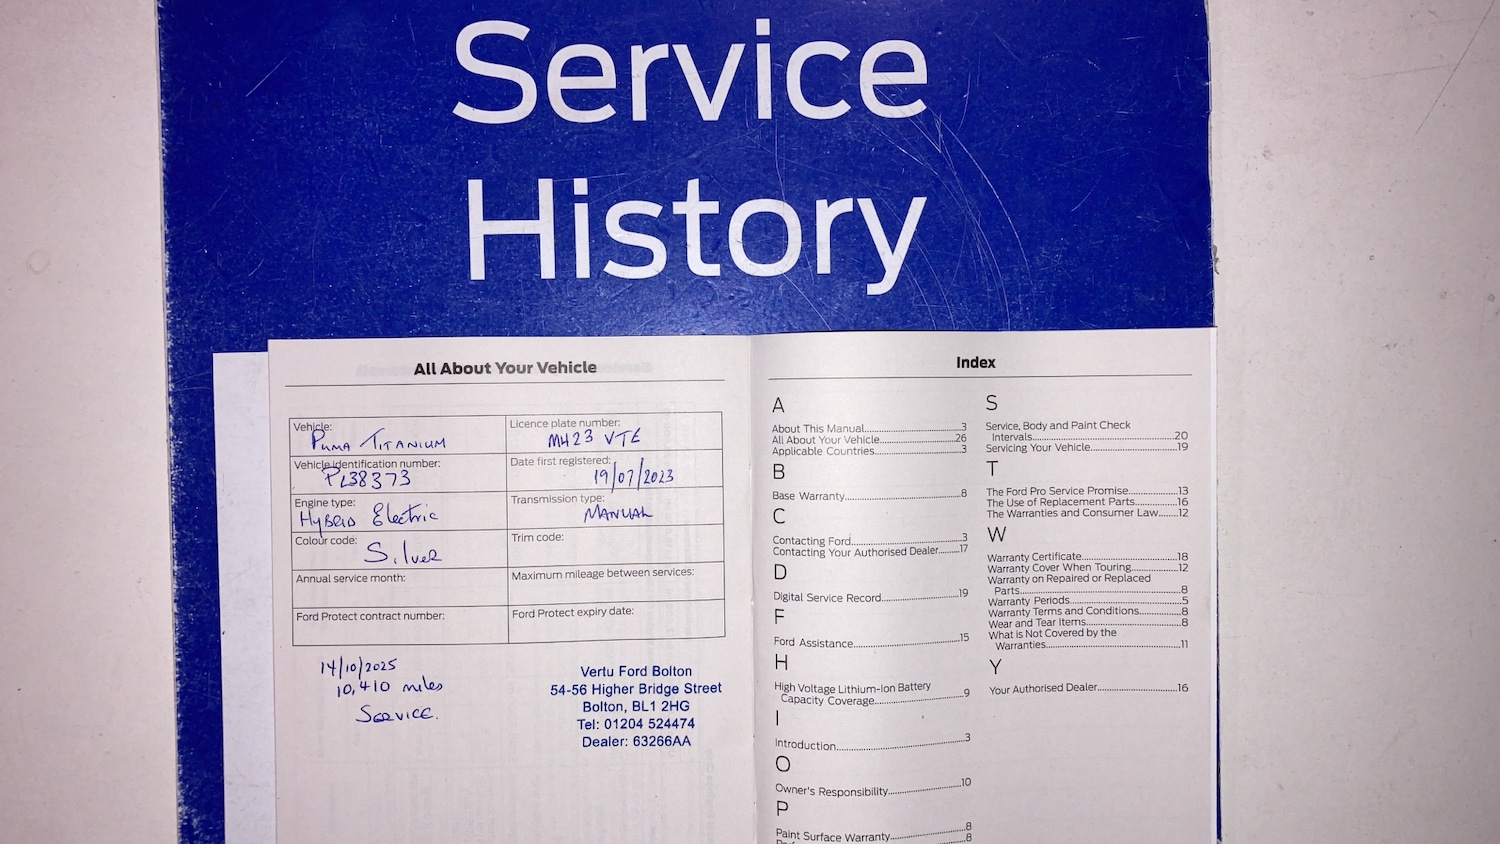 Service
History
All About Your Vehicle
Vehicle: Puma Titanium
Licence plate number: MH23 VTE
Vehicle identification number: PL38373
Date first registered: 19/07/2023
Engine type: Hybrid Electric
Transmission type: Manual
Colour code: Silver
Trim code:
Annual service month:
Maximum mileage between services:
Ford Protect contract number:
Ford Protect expiry date:
14/10/2025
10,410 miles
Service.
Vertu Ford Bolton
54-56 Higher Bridge Street
Bolton, BL1 2HG
Tel: 01204 524474
Dealer: 63266AA
Index
A
About This Manual....3
All About Your Vehicle....26
Applicable Countries....3
B
Base Warranty....8
C
Contacting Ford....3
Contacting Your Authorised Dealer....17
D
Digital Service Record....19
F
Ford Assistance....15
H
High Voltage Lithium-Ion Battery
Capacity Coverage....9
I
Introduction....3
O
Owner's Responsibility....10
P
Paint Surface Warranty....8
8
S
Service, Body and Paint Check
Intervals....20
Servicing Your Vehicle....19
T
The Ford Pro Service Promise....13
The Use of Replacement Parts....16
The Warranties and Consumer Law....12
W
Warranty Certificate....18
Warranty Cover When Touring....12
Warranty on Repaired or Replaced
Parts....8
Warranty Periods....5
Warranty Terms and Conditions....8
Wear and Tear Items....8
What is Not Covered by the
Warranties....11
Y
Your Authorised Dealer....16